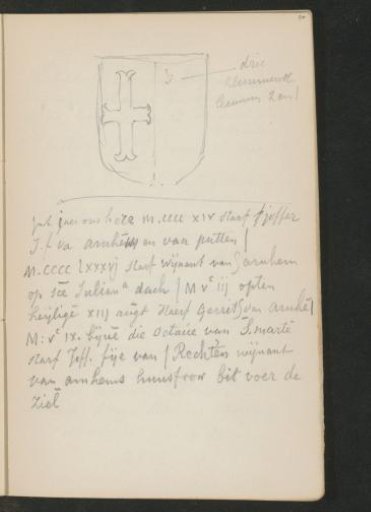 drie
int jaer ons here M.CCCC XIV starf joffer
J. f va arnhem en van putten
M.CCCC LXXXVJ starf wijnant van arnhem
op ste Julian dach M Vc iij opten
heijlige XIIJ augt starf Gerrit van arnhe
M: Vc IX. binne die octaue van S. marte
starf Joff. fije van Rechten wijnant
van arnhems huusfrow bit voer de
ziel